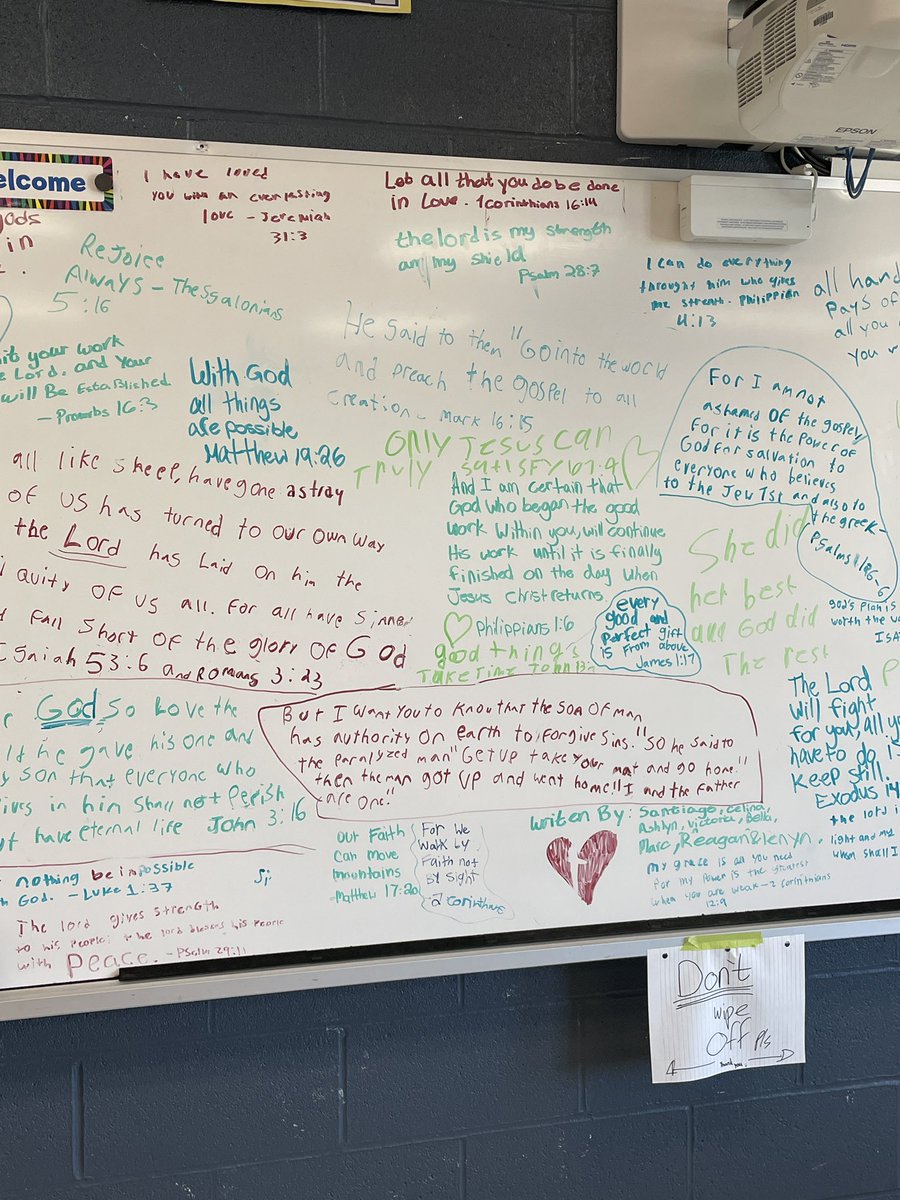 elcome
EPSON
I have loved
you with an everlasting
love - Jeremiah
31:3
Let all that you do be done
in Love. 1 Corinthians 16:14
gods
in
the lord is my strength
an my shield
Psalm 28:7
Rejoice
Always - Thessalonians
5:16
I can do everything
throught him who gives
me strenth. Philippian
4:13
all hard
Pays of
all you
you
He said to them "Go into the world
and preach the gospel to all
Creation - Mark 16:15
mit your work
e Lord, and Your
will Be Established
- Proverbs 16:3
With God
all things
are possible
Matthew 19:26
For I am not
ashamed OF the gospel,
For it is the Power of
God For Salvation to
everyone who believes
to the Jew 1st and also to
the greek -
Psalms
only Jesus can
Truly satisfy
all like sheep, have gone astray
of us has turned to our own way
the Lord has Laid on him the
quity of us all. For all have Sinned
Fall Short of the glory of God
Isaiah 53:6 and Romans 3:23
And I am certain that
God who began the good
work within you, will continue
His work until it is finally
finished on the day when
Jesus Christ returns.
Philippians 1:6
She did
her best
and God did
The rest
every
good and
perfect gift
is From above
James 1:17
good things
Take Time
god's plan is
worth the
ISA
God, So Love the
he gave his one and
son that everyone who
in him Shall not Perish
have eternal life John 3:16
But I Want You to Know that the Son OF man
has authority on earth to forgive sins." So he said to
the Paralyzed man "Get up take your mat and go home."
then the man got up and went home "I and the Father
are one."
The Lord
will fight
for you, all yo
have to do is
Keep still.
Exodus 14
the lord i
light and my
whom shall I
nothing be impossible
h God. - Luke 1:37
The lord gives strength
to his people; the lord blesses his people
with Peace. - Psalm 29:11
our Faith
Can Move
mountains
- Matthew 17:20
For we
walk by
Faith not
By Sight
- 2 Corinthians
Writen By: Santiago, Celina,
Ashlyn, Victoria, Bella,
Marc, Reagan & lenyn.
my grace is all you need
For my Power is the greatest
when you are weak - 2 Corinthians
12:9
Don't
wipe
off pls